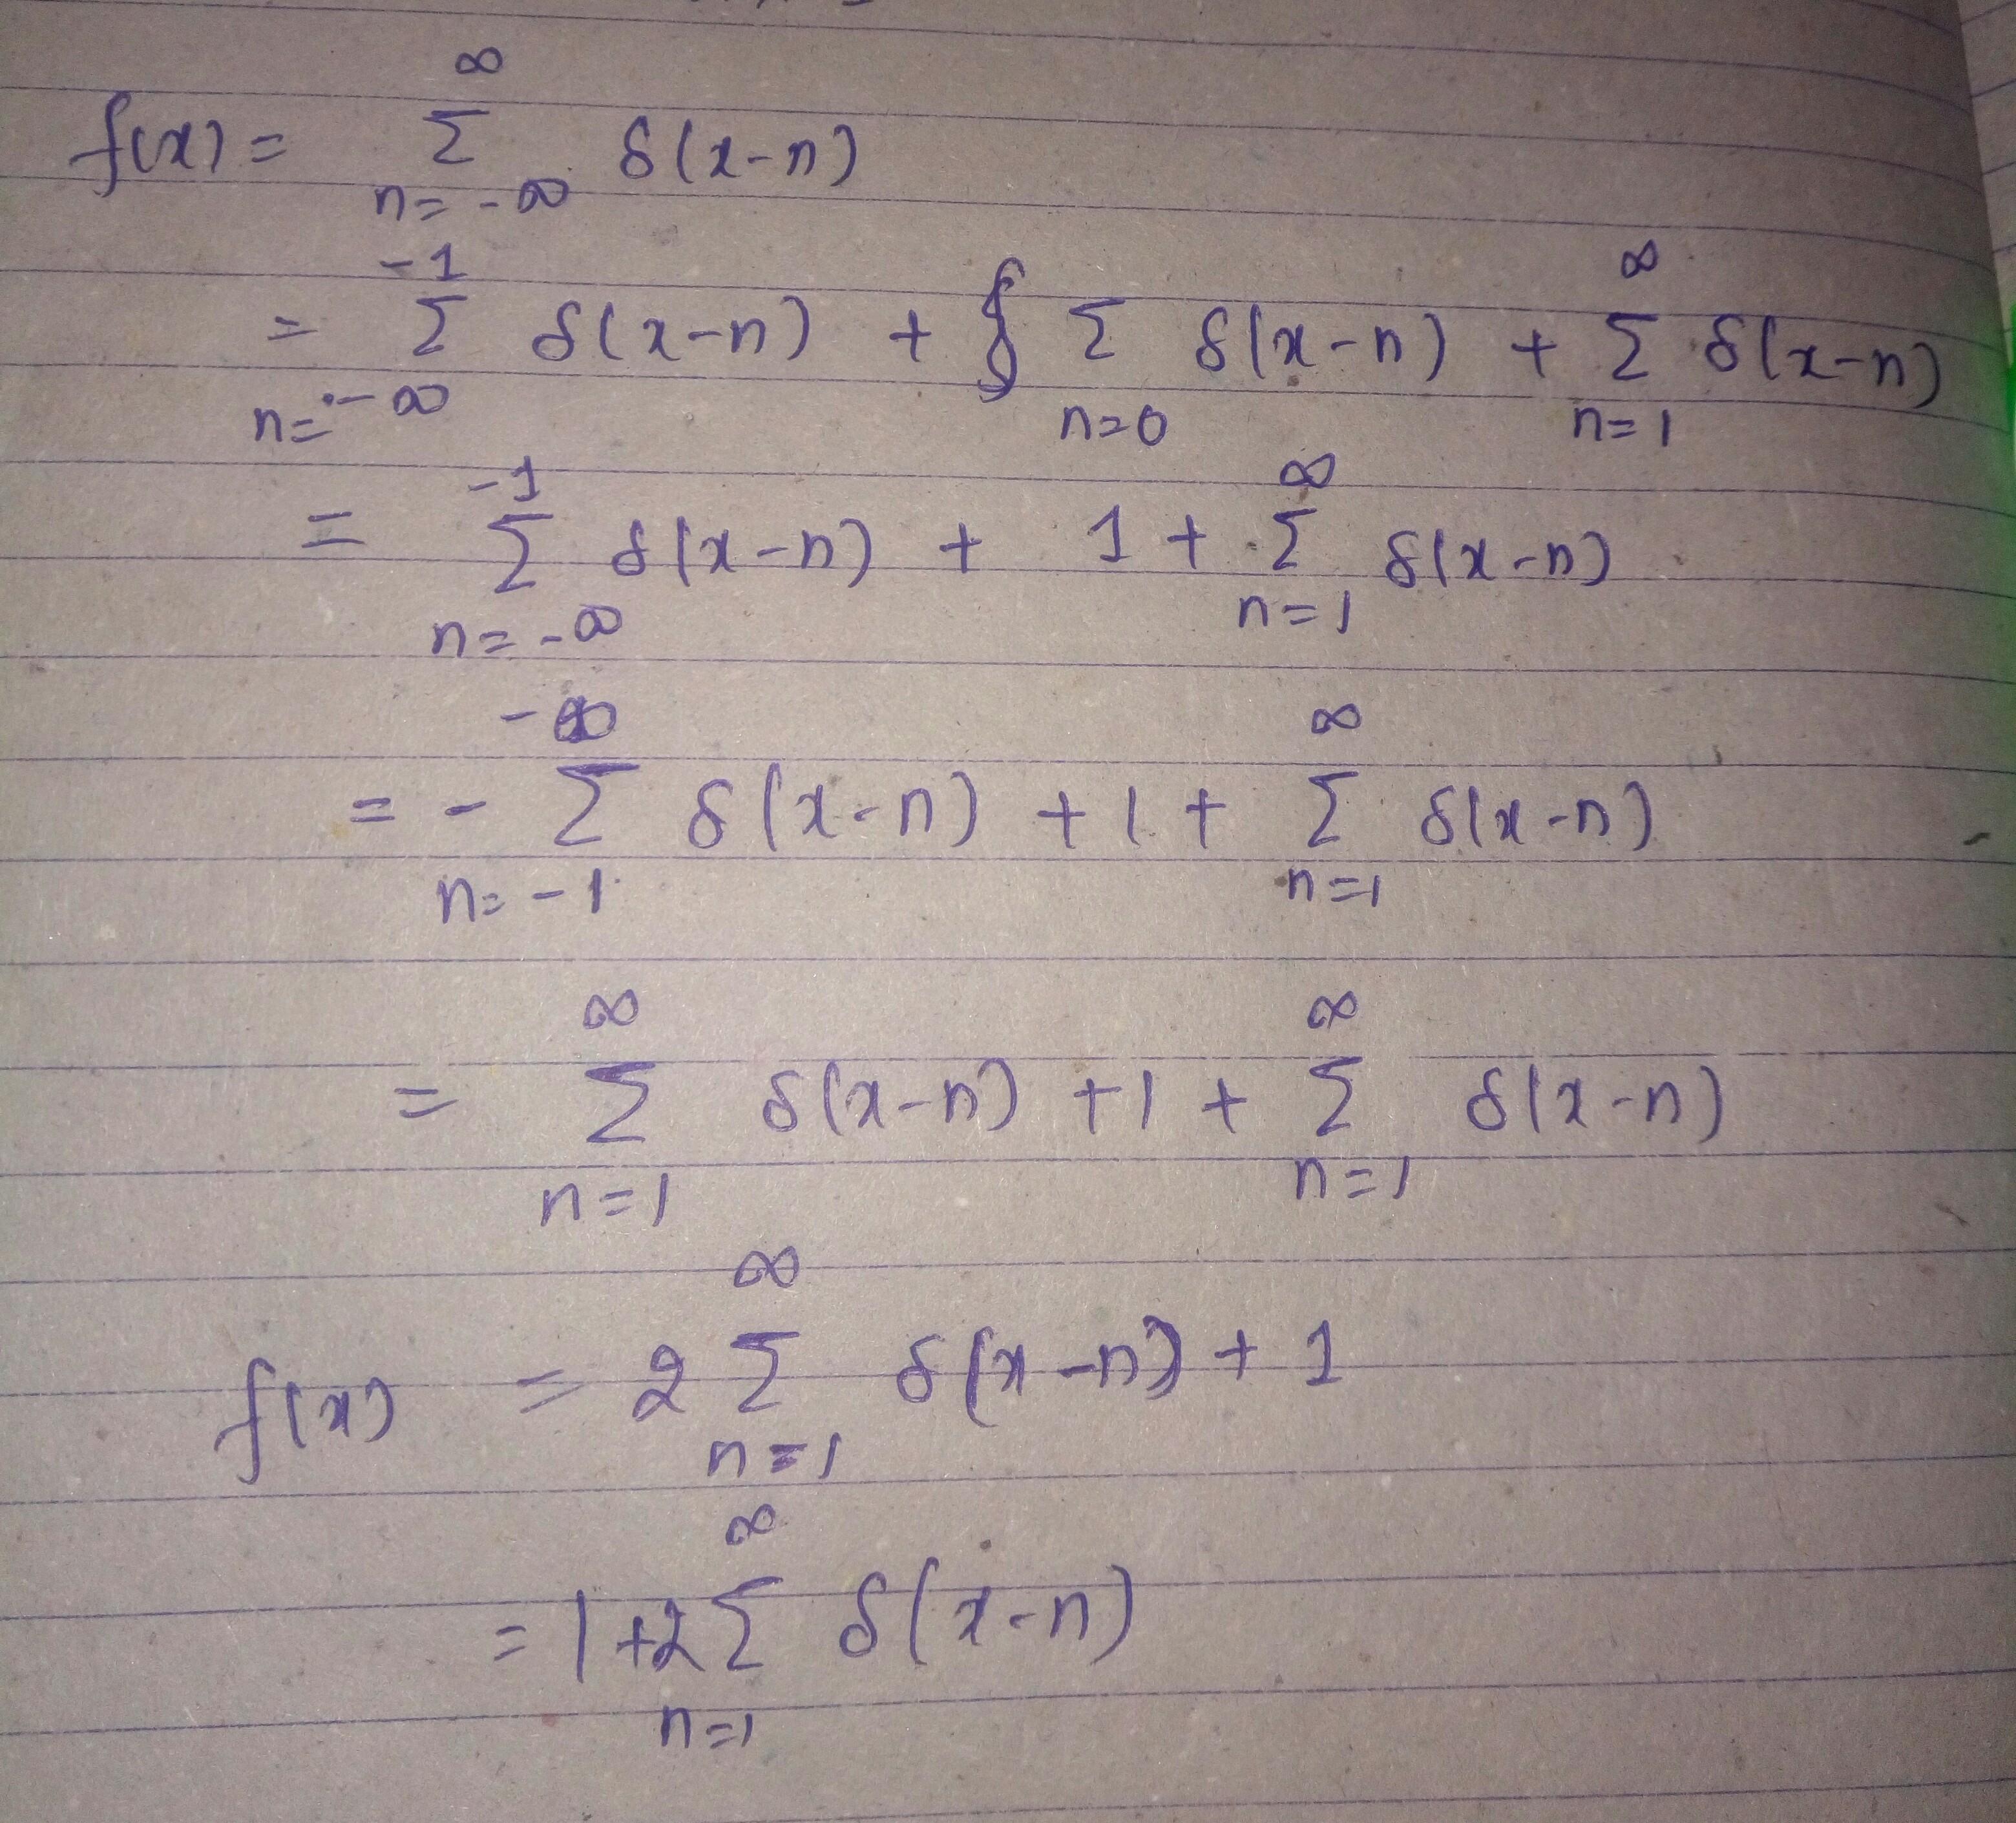 f(x) = ∞ Σ n=-∞ δ(x-n)
= -1 Σ n=-∞ δ(x-n) + Σ n=0 δ(x-n) + ∞ Σ n=1 δ(x-n)
= -1 Σ n=-∞ δ(x-n) + 1 + ∞ Σ n=1 δ(x-n)
= - -∞ Σ n=-1 δ(x-n) + 1 + ∞ Σ n=1 δ(x-n)
= ∞ Σ n=1 δ(x-n) + 1 + ∞ Σ n=1 δ(x-n)
f(x) = 2 ∞ Σ n=1 δ(x-n) + 1
= 1 + 2 ∞ Σ n=1 δ(x-n)